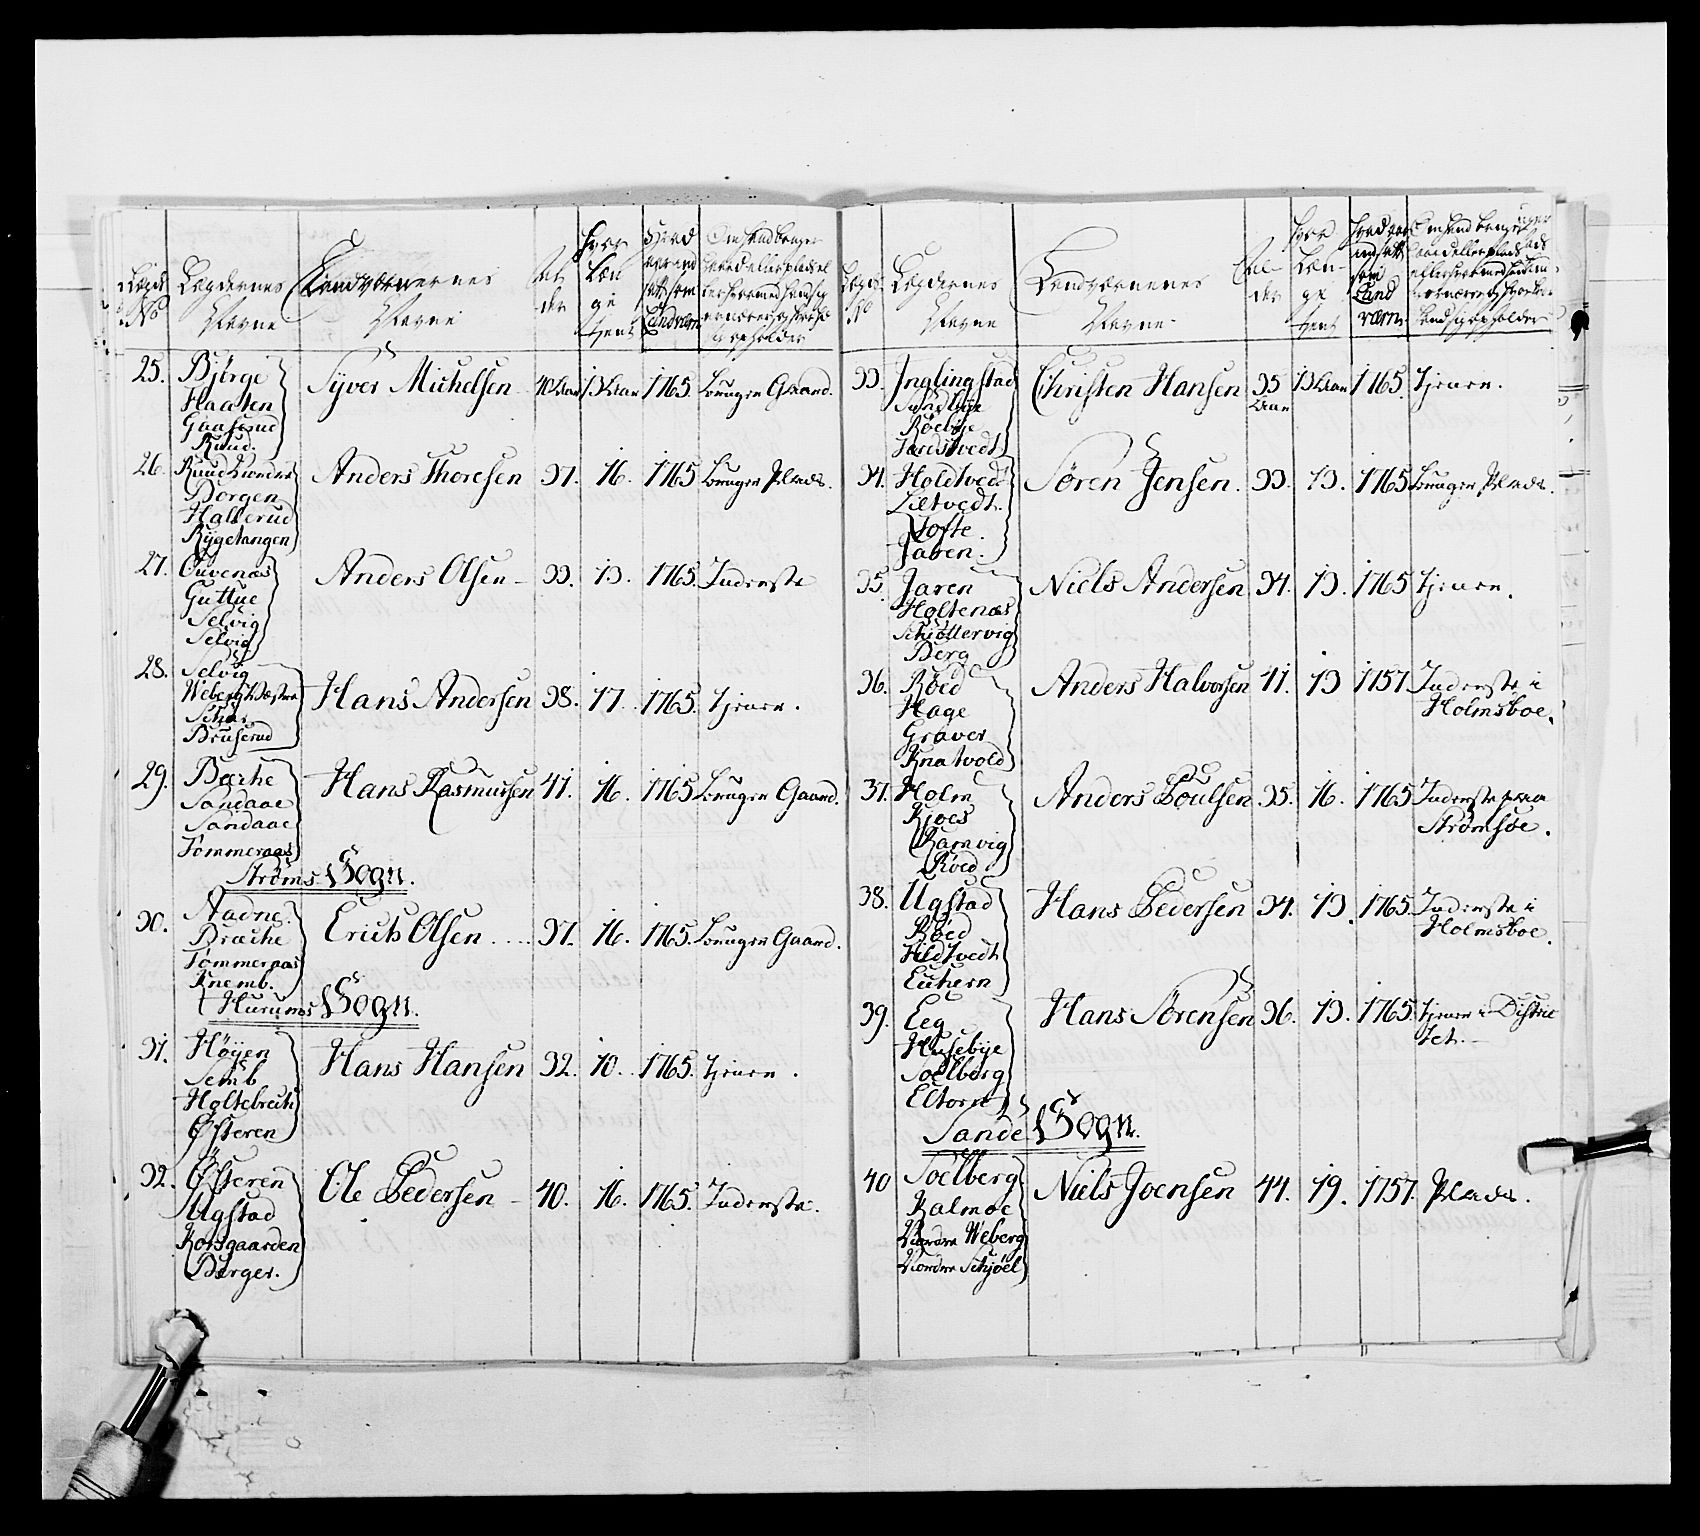 Lægds No
Lægdernes Navne
Landværnernes Navne
Al der
Hvor Læn ge tjent
Hvad aar ind satt som Landværn
25. Bjørge
Haaten
Gaaserud
Ruud.
Syver Michelsen 40 Aar 13 Aar 1765. bruger Gaard.
26. Ruud Nordre
Borgen
Hallerud
Rygetangen
Anders Thoresen 37. 16. 1765 bruger Plads.
27. Ouvenæs
Guttue
Selvig
Selvig
Anders Olsen 33. 13. 1765. Inderste
28. Selvig
Weberg Wæstre
Schar
Bruserud
Hans Andersen 38. 17. 1765. tjener.
29. Barhe
Sandaae
Sandaae
Tommeraas
Hans Rasmussen 41. 16. 1765 bruger Gaard.
Strøms Sogn.
30. Aadne
Brache
Tømmeraas
Knemb.
Erich Olsen .... 37. 16. 1765. bruger Gaard.
Hurums Sogn.
31. Høyen
Semb
Holtebrech
Østeren
Hans Hansen 32. 10. 1765. tjener.
32. Østeren
Ugstad
Korsgaarden
Barger.
Ole Pedersen 40. 16. 1765. Inderste.
Lægds No
Lægdernes Navne
Landværnernes Navne
Al der
Hvor Læn ge tjent
Hvad aar indsatt som Land værn
33. Inglingstad
Sundbye
Røebye
Jærdsvedt
Christen Hansen 35 Aar 13 Aar 1765. tjener.
34. Holdtvedt
Lietvedt.
Tofte.
Jaben.
Søren Jensen. 33. 13. 1765 bruger Plads.
35. Jaren
Holtenæs
Schiøttervig
Berg
Niels Andersen 34. 13. 1765 tjener.
36. Røed
Hage
Graver
Knatvold
Anders Halvorsen 41. 13 1757 Inderste i
Holmsboe.
37. Holm
Kjoes
Ramvig
Røed
Anders Poulsen 35. 16. 1765 Inderste paa
Strømsøe.
38. Ugstad
Røed
Hildtvedt
Euhern
Hans Pedersen 34. 13. 1765. Inderste i
Holmsboe.
39. Eeg
Husebye
Soelberg
Eltorn
Hans Sørensen 36. 13. 1765. tjener i Distric
tet.
Sande Sogn.
40 Soelberg
Kalmoe
Nordre Weberg
Nordre Schjøel
Niels Joensen 44. 19. 1757. Plads.